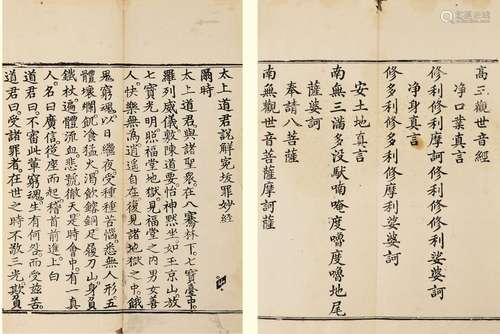 高王觀世音經
淨口業真言
修利修利摩訶修利修修利娑婆訶
淨身真言
修多利修多利修摩利娑婆訶
安土地真言
南無三滿多沒馱喃唵度嚕度嚕地尾
薩婆訶
奉請八菩薩
南無觀世音菩薩摩訶薩
太上道君說解冤拔罪妙經
爾時
太上道君與諸聖衆在八騫林下七寶臺中
羅列威儀敷陳道要怡神默坐如玉京山放
七寶光明照福堂地獄見福堂之内男女善
人快樂無為逍遥自在復見諸地獄之中餓
鬼窮魂以日繼夜受種種苦惱悉無人形五
體壞爛飢食猛火渴飲鎔銅足履刀山身負
鐵杖遍體流血悲號徹天是時會中有一真
人名曰廣信從座而起稽首前進上白
道君曰不審此輩窮魂生有何咎而受茲苦
道君曰受諸罪者在世之時不敬三光欺負